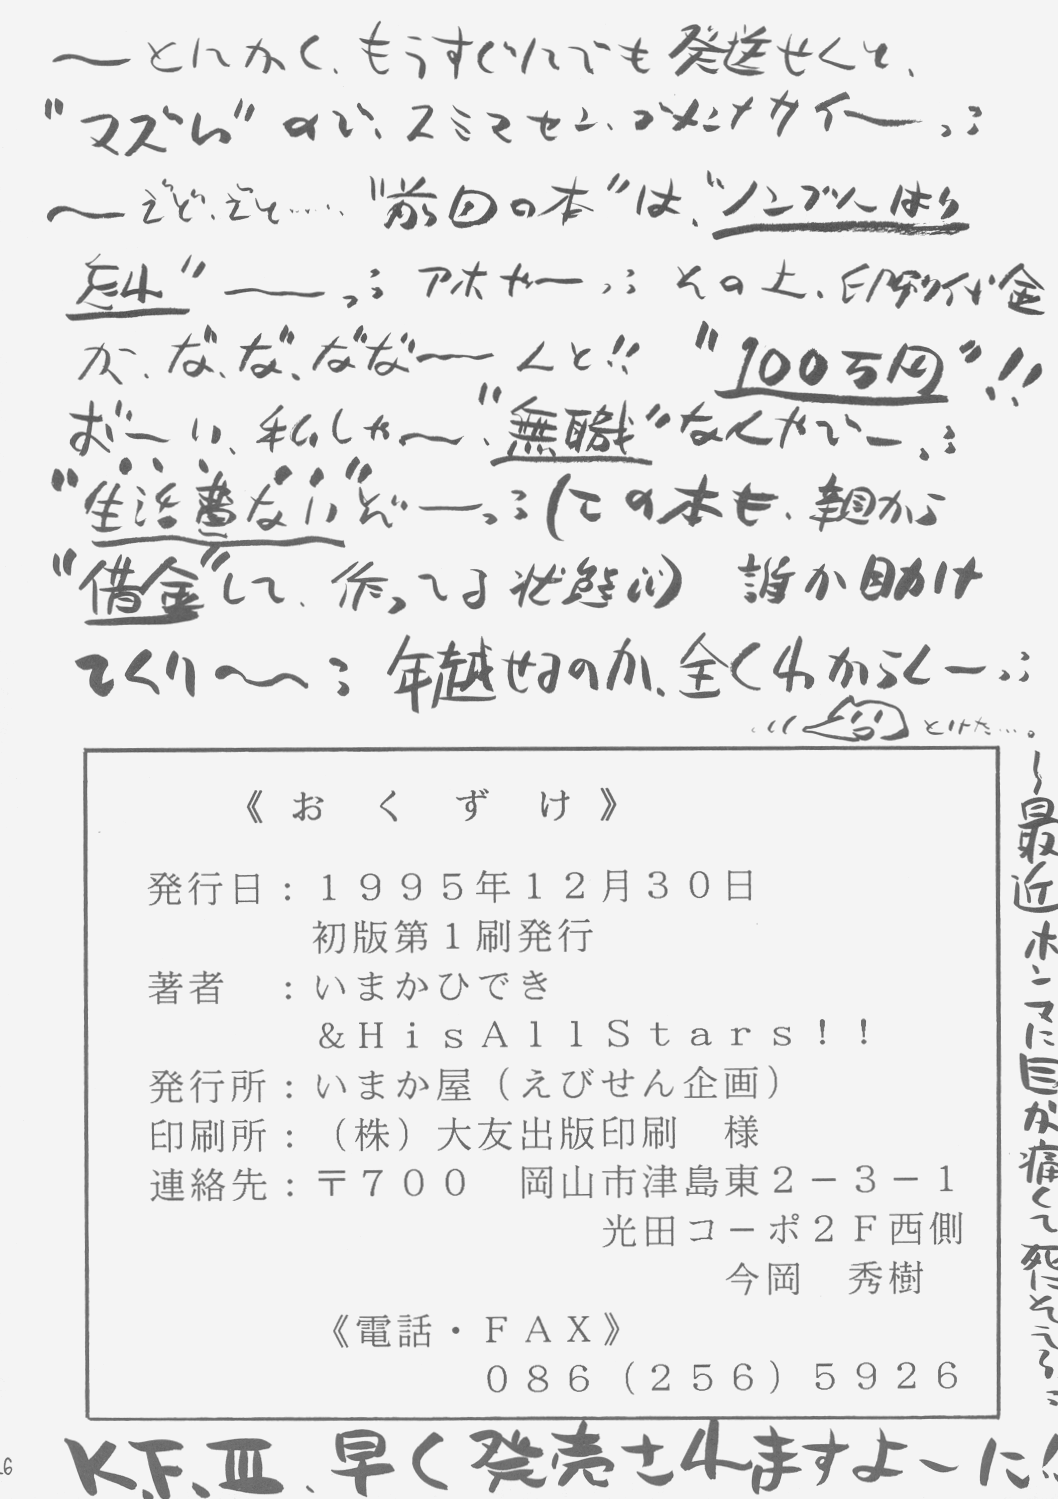 〜とにかく、もうすぐにでも発送せんと、
"マズい"ので、スミマセン、ゴメンナサイー
"前回の本"は、"ノンブルはり
忘れ"ー アホやー その上、印刷代金
が、な、な、なな〜んと!! "100万円"!!
おーい、私しゃ〜、"無職"なんやでー
"生活費ない"ぞー (この本も、親から
"借金"して、作ってる状態) 誰か助け
てくり〜 年越せるのか、全くわからんー
とけた…。
《おくずけ》
発行日:1995年12月30日
初版第1刷発行
著者 :いまかひでき
&HisAllStars!!
発行所:いまか屋(えびせん企画)
印刷所:(株)大友出版印刷 様
連絡先:〒700 岡山市津島東2−3−1
光田コーポ2F西側
今岡 秀樹
《電話・FAX》
086(256)5926
〜最近ホンマに目が痛くて死にそう
K.F.Ⅲ、早く発売されますよーに!